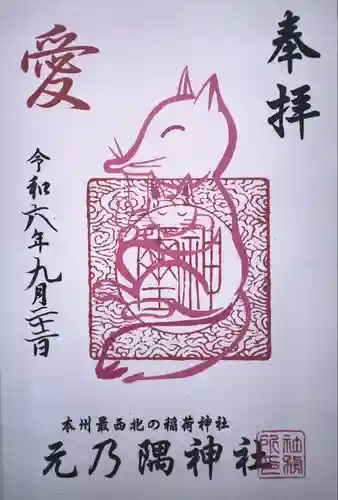 奉拝
愛
令和六年九月二十二日
本州最西北の稲荷神社
元乃隅神社
社務所印